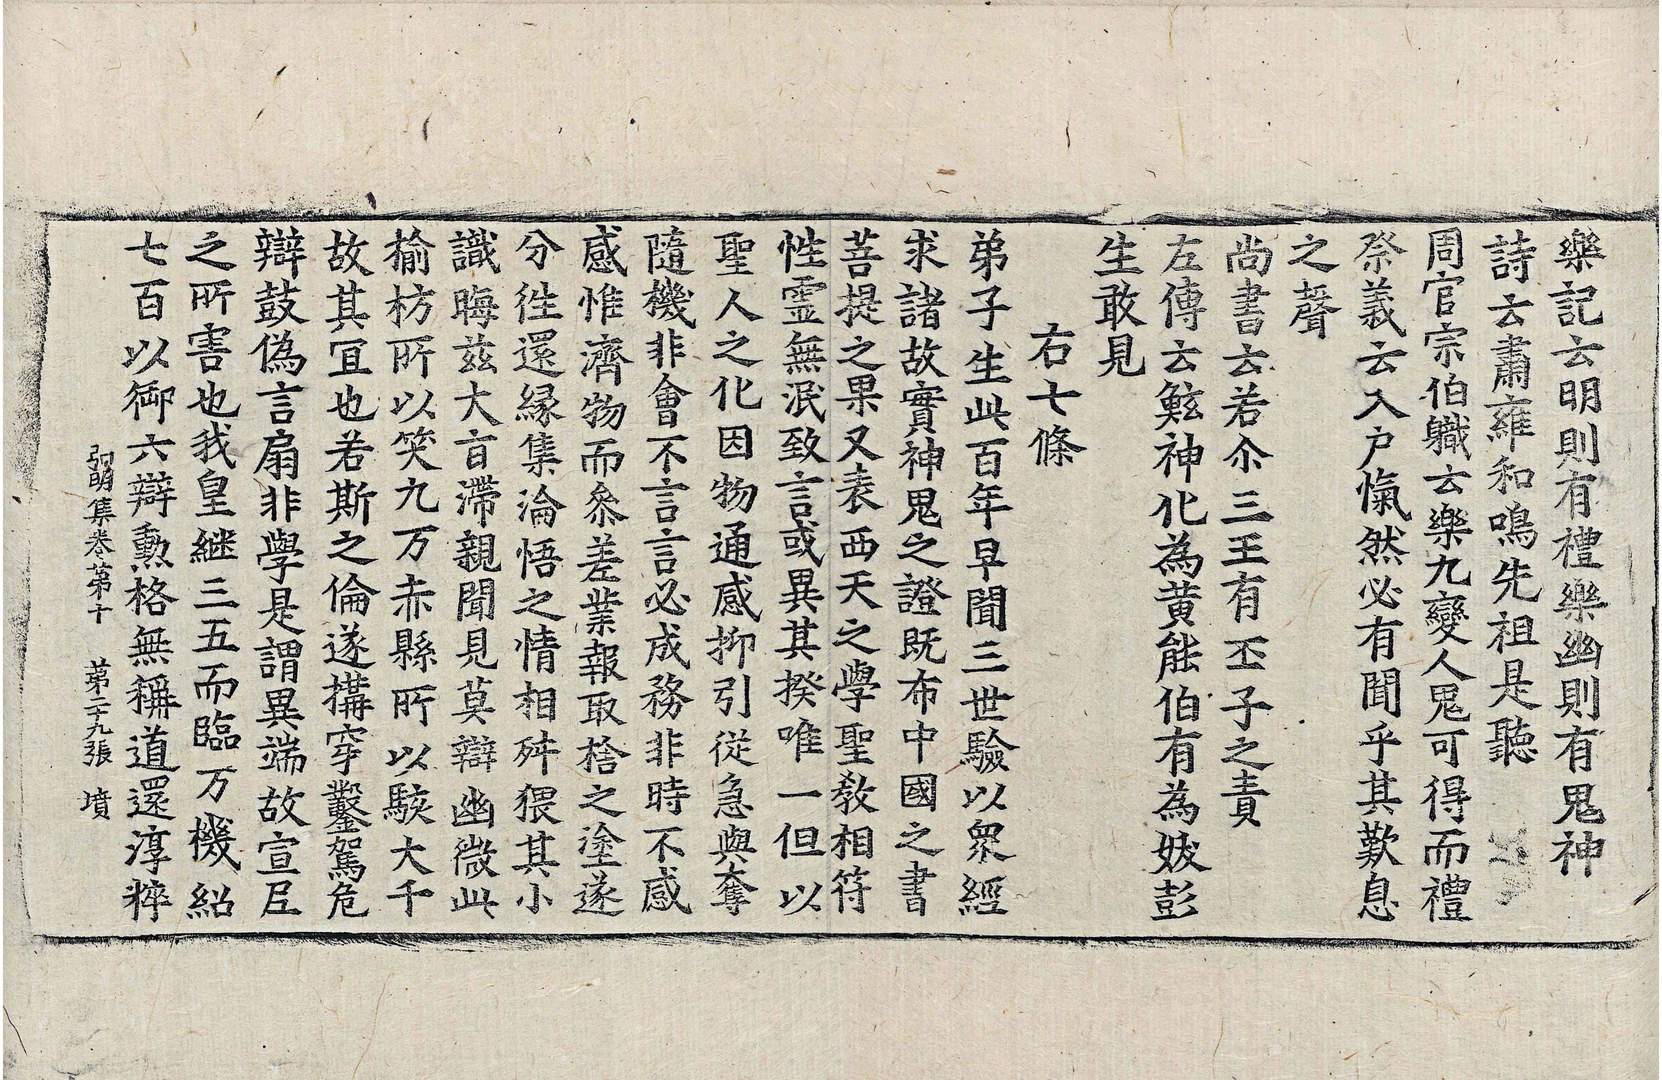 樂記云明則有禮樂幽則有鬼神
詩云肅雍和鳴先祖是聽
周官宗伯軄云樂九變人鬼可得而禮
祭義云入户愾然必有聞乎其歎息
之聲
尚書云若尒三王有丕子之責
左傳云鯀神化為黄能伯有為妭彭
生敢見
右七條
弟子生此百年早聞三世驗以衆經
求諸故實神鬼之證既布中國之書
菩提之果又表西天之學聖教相符
性霊無泯致言或異其揆唯一但以
聖人之化因物通感抑引從急與奪
隨機非會不言言必成務非時不感
感惟濟物而叅差業報取捨之塗遂
分往還縁集淪悟之情相舛猥其小
識晦兹大旨滯親聞見莫辯幽微此
榆枋所以笑九万赤縣所以駭大千
故其冝也若斯之倫遂搆穿鑿駕危
辯鼓偽言扇非學是謂異端故宣尼
之所害也我皇継三五而臨万機紹
七百以御六辯勲格無稱道還淳粹
弘明集卷第十 第二十九張 墳